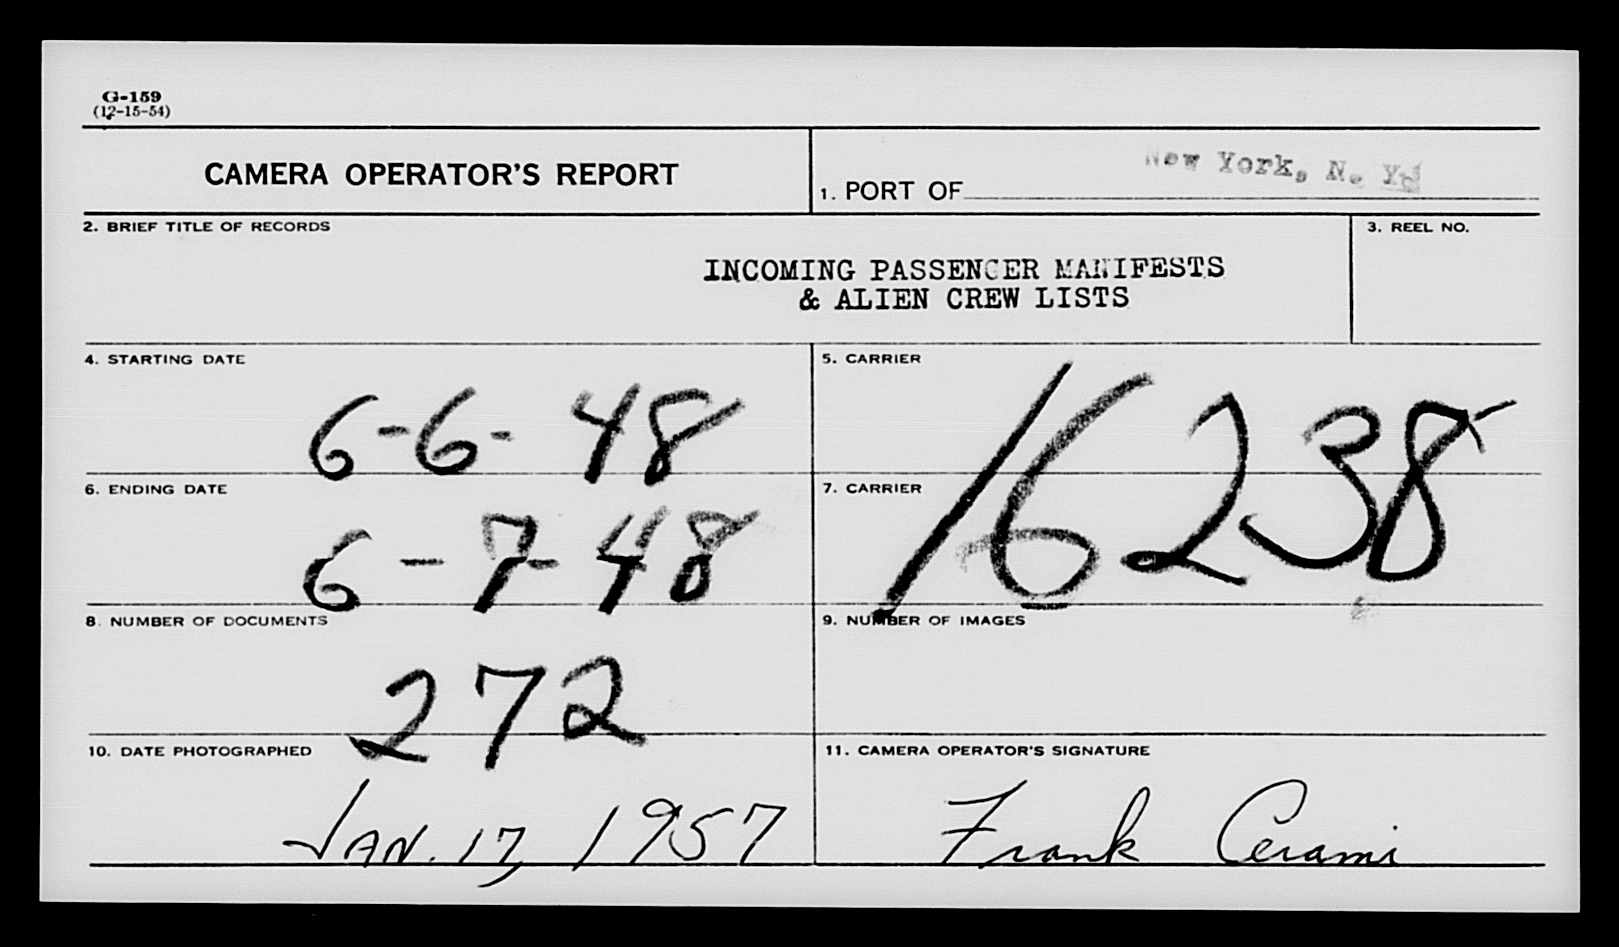 G-159
(12-15-54)
CAMERA OPERATOR'S REPORT
1. PORT OF New York, N. Y.
2. BRIEF TITLE OF RECORDS
INCOMING PASSENGER MANIFESTS
& ALIEN CREW LISTS
3. REEL NO.
4. STARTING DATE
6-6-48
5. CARRIER
16238
6. ENDING DATE
6-7-48
7. CARRIER
8. NUMBER OF DOCUMENTS
272
9. NUMBER OF IMAGES
10. DATE PHOTOGRAPHED
JAN. 17, 1957
11. CAMERA OPERATOR'S SIGNATURE
Frank Cerami